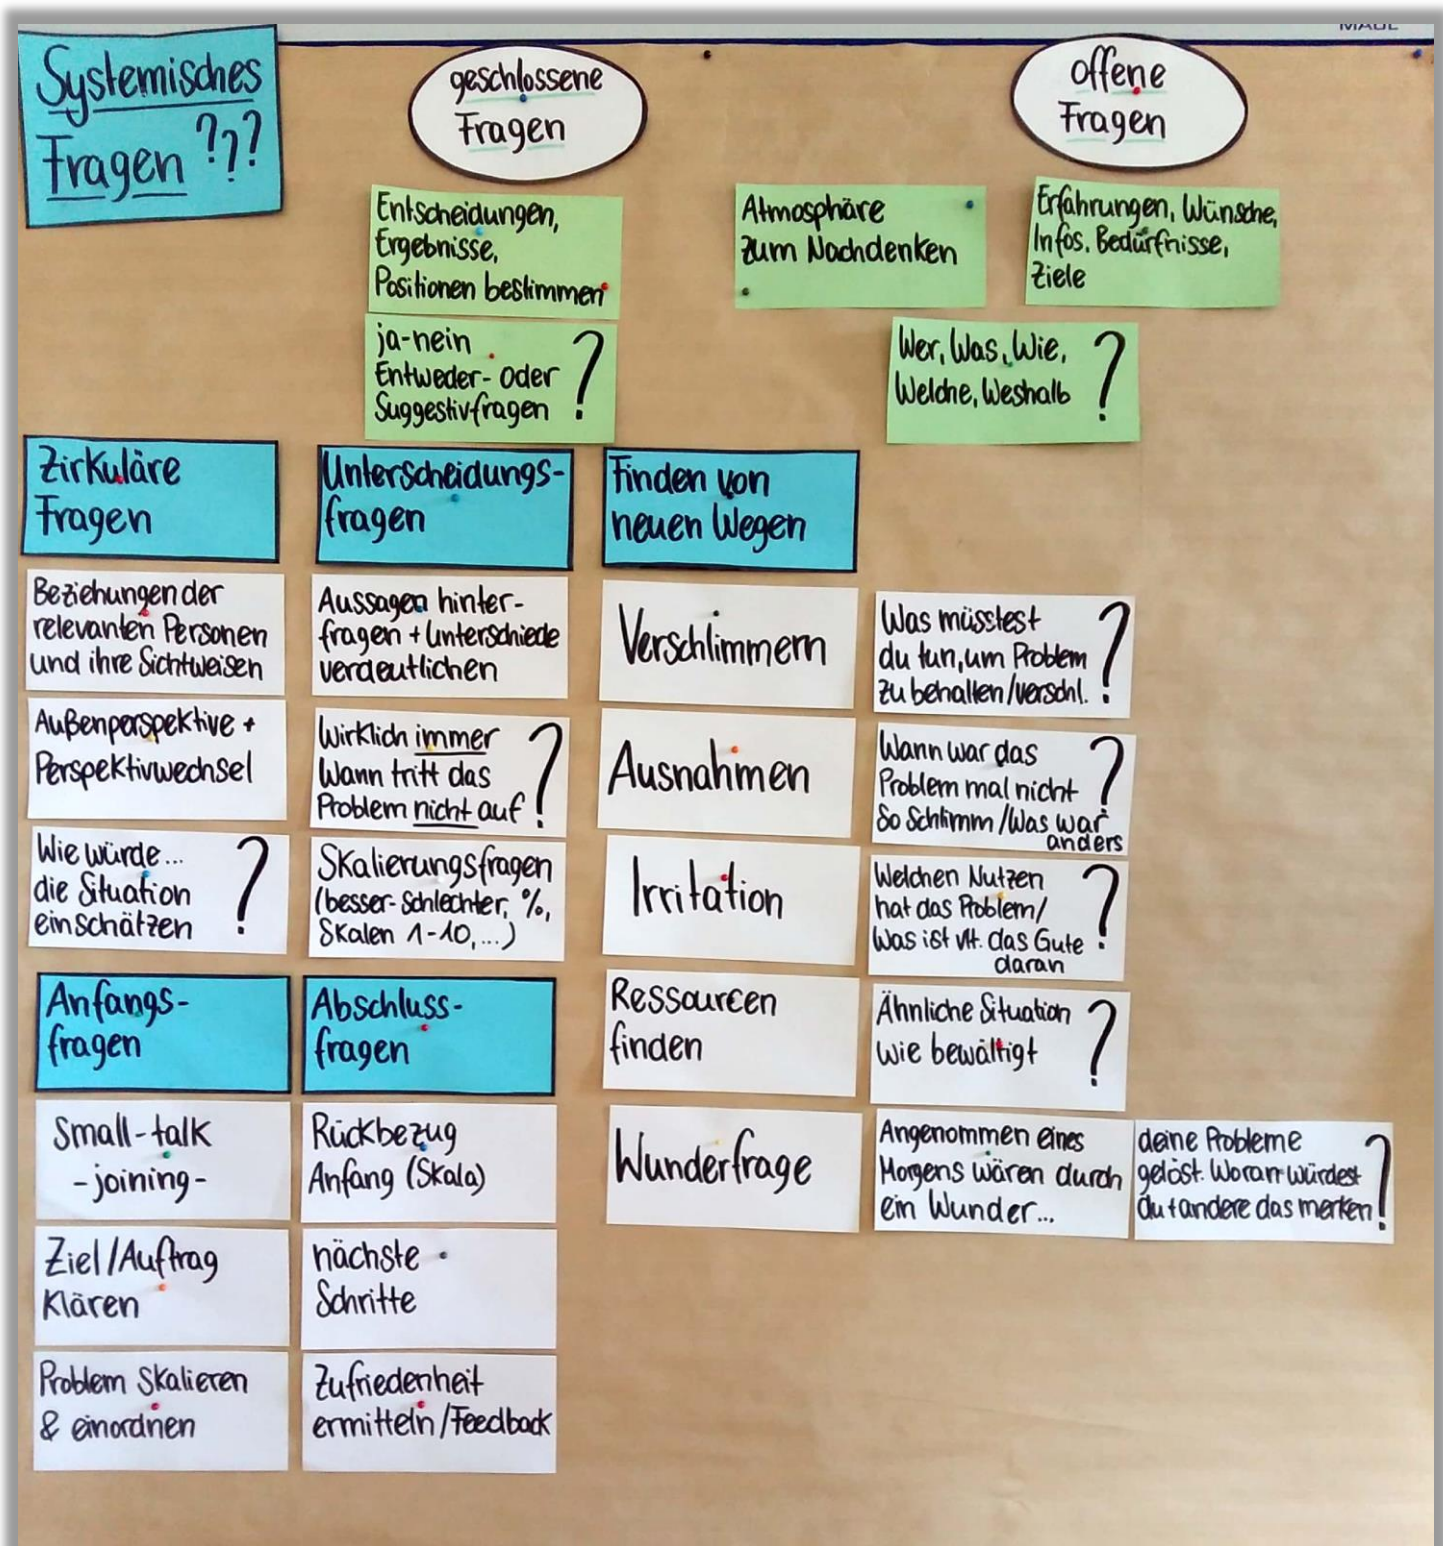 MAUL
Systemisches
Fragen ???
geschlossene
Fragen
offene
Fragen
Entscheidungen,
Ergebnisse,
Positionen bestimmen
Atmosphäre
zum Nachdenken
Erfahrungen, Wünsche,
Infos, Bedürfnisse,
Ziele
ja-nein
Entweder- oder
Suggestivfragen ?
Wer, Was, Wie,
Welche, Weshalb ?
Zirkuläre
Fragen
Beziehungen der
relevanten Personen
und ihre Sichtweisen
Außenperspektive +
Perspektivwechsel
Wie würde...
die Situation
einschätzen ?
Unterscheidungs-
fragen
Aussagen hinter-
fragen + Unterschiede
verdeutlichen
Wirklich immer
Wann tritt das
Problem nicht auf ?
Skalierungsfragen
(besser-schlechter, %,
Skalen 1-10,...)
Finden von
neuen Wegen
Verschlimmern
Was müsstest
du tun, um Problem
zu behalten/verschl. ?
Ausnahmen
Wann war das
Problem mal nicht
so schlimm/Was war
anders ?
Irritation
Welchen Nutzen
hat das Problem/
Was ist vlt. das Gute
daran ?
Ressourcen
finden
Ähnliche Situation
wie bewältigt ?
Wunderfrage
Angenommen eines
Morgens wären durch
ein Wunder...
deine Probleme
gelöst. Woran würdest
du + andere das merken ?
Anfangs-
fragen
Small-talk
-joining-
Ziel/Auftrag
klären
Problem skalieren
& einordnen
Abschluss-
fragen
Rückbezug
Anfang (Skala)
nächste
Schritte
Zufriedenheit
ermitteln/Feedback